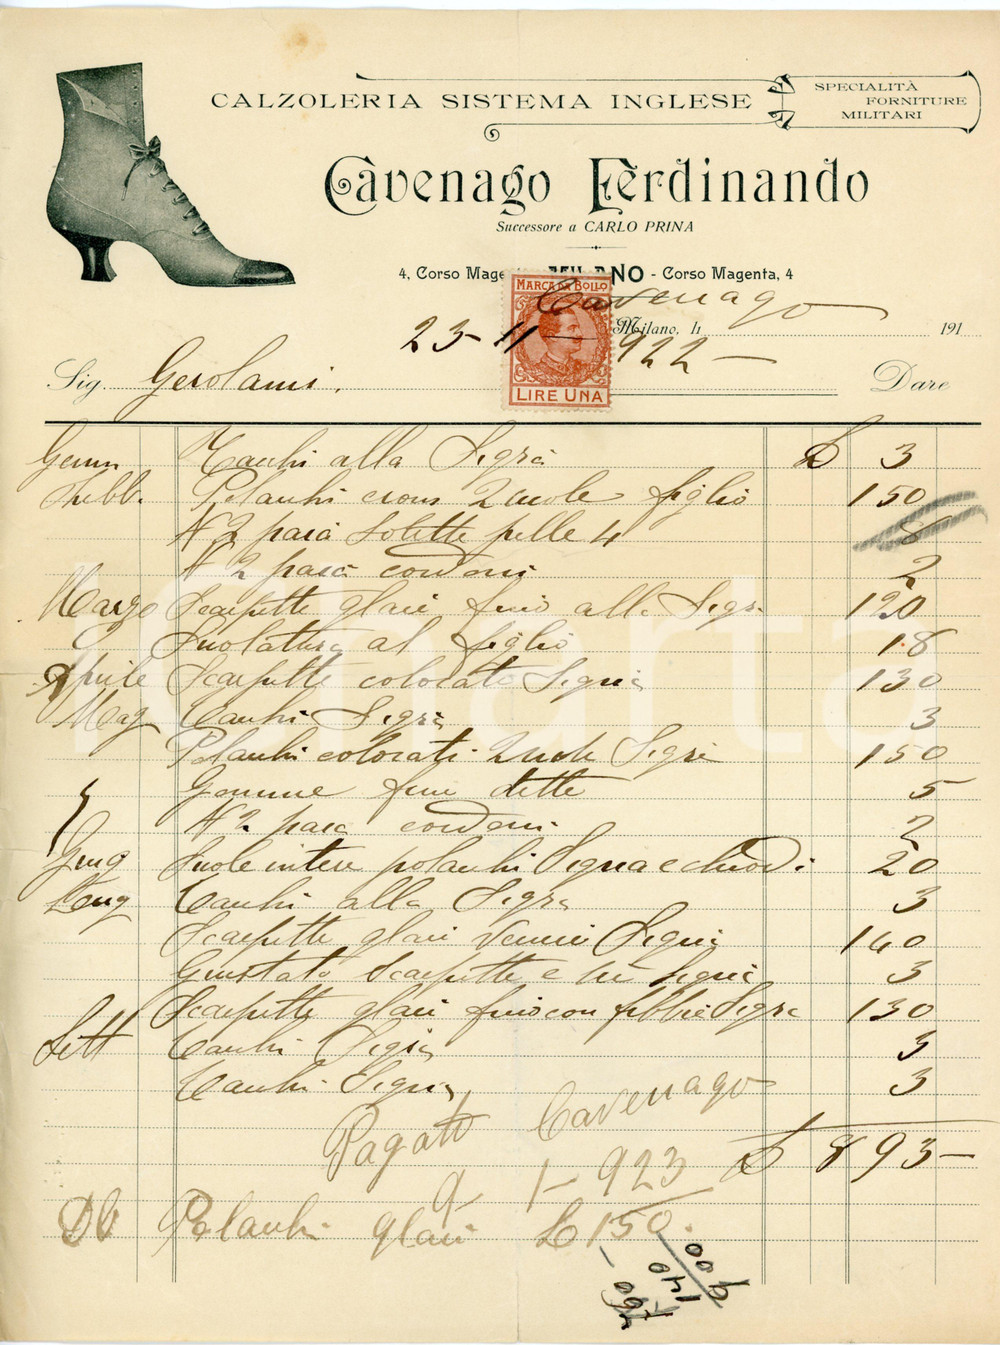 CALZOLERIA SISTEMA INGLESE
SPECIALITÀ
FORNITURE
MILITARI
Cavenago Ferdinando
Successore a CARLO PRINA
4, Corso Mage NO - Corso Magenta, 4
MARCA DA BOLLO
Cavenago
Milano, li 191
23-11-922-
LIRE UNA
Sig. Gerolami. Dare
Genn Tacchi alla Sigra £ 3
Febb. Polacchi 2 suole figlio 150
N 2 paia Solette pelle 4 8
N 2 paia cordoni 2
Marzo Scarpette glacè fino alla Sigra 120
Suolatura al figlio 18
Aprile Scarpette colorate Signa 130
Mag Tacchi Sigra 3
Polacchi colorati 2 suole Sigra 150
Gomme fine dette 5
N 2 paia cordoni 2
Giug Suole intere polacchi Signa e chiodi 20
Tacchi alla Sigra 3
Scarpette glacè Signa 140
Scarpette e Signa 3
Scarpette glacè fino con fibbie Sigra 130
Sett Tacchi Sigra 3
Tacchi Signa 3
Pagato Cavenago
£ 893-
9-1-923
Polacchi glacè £ 150.
900
140
760